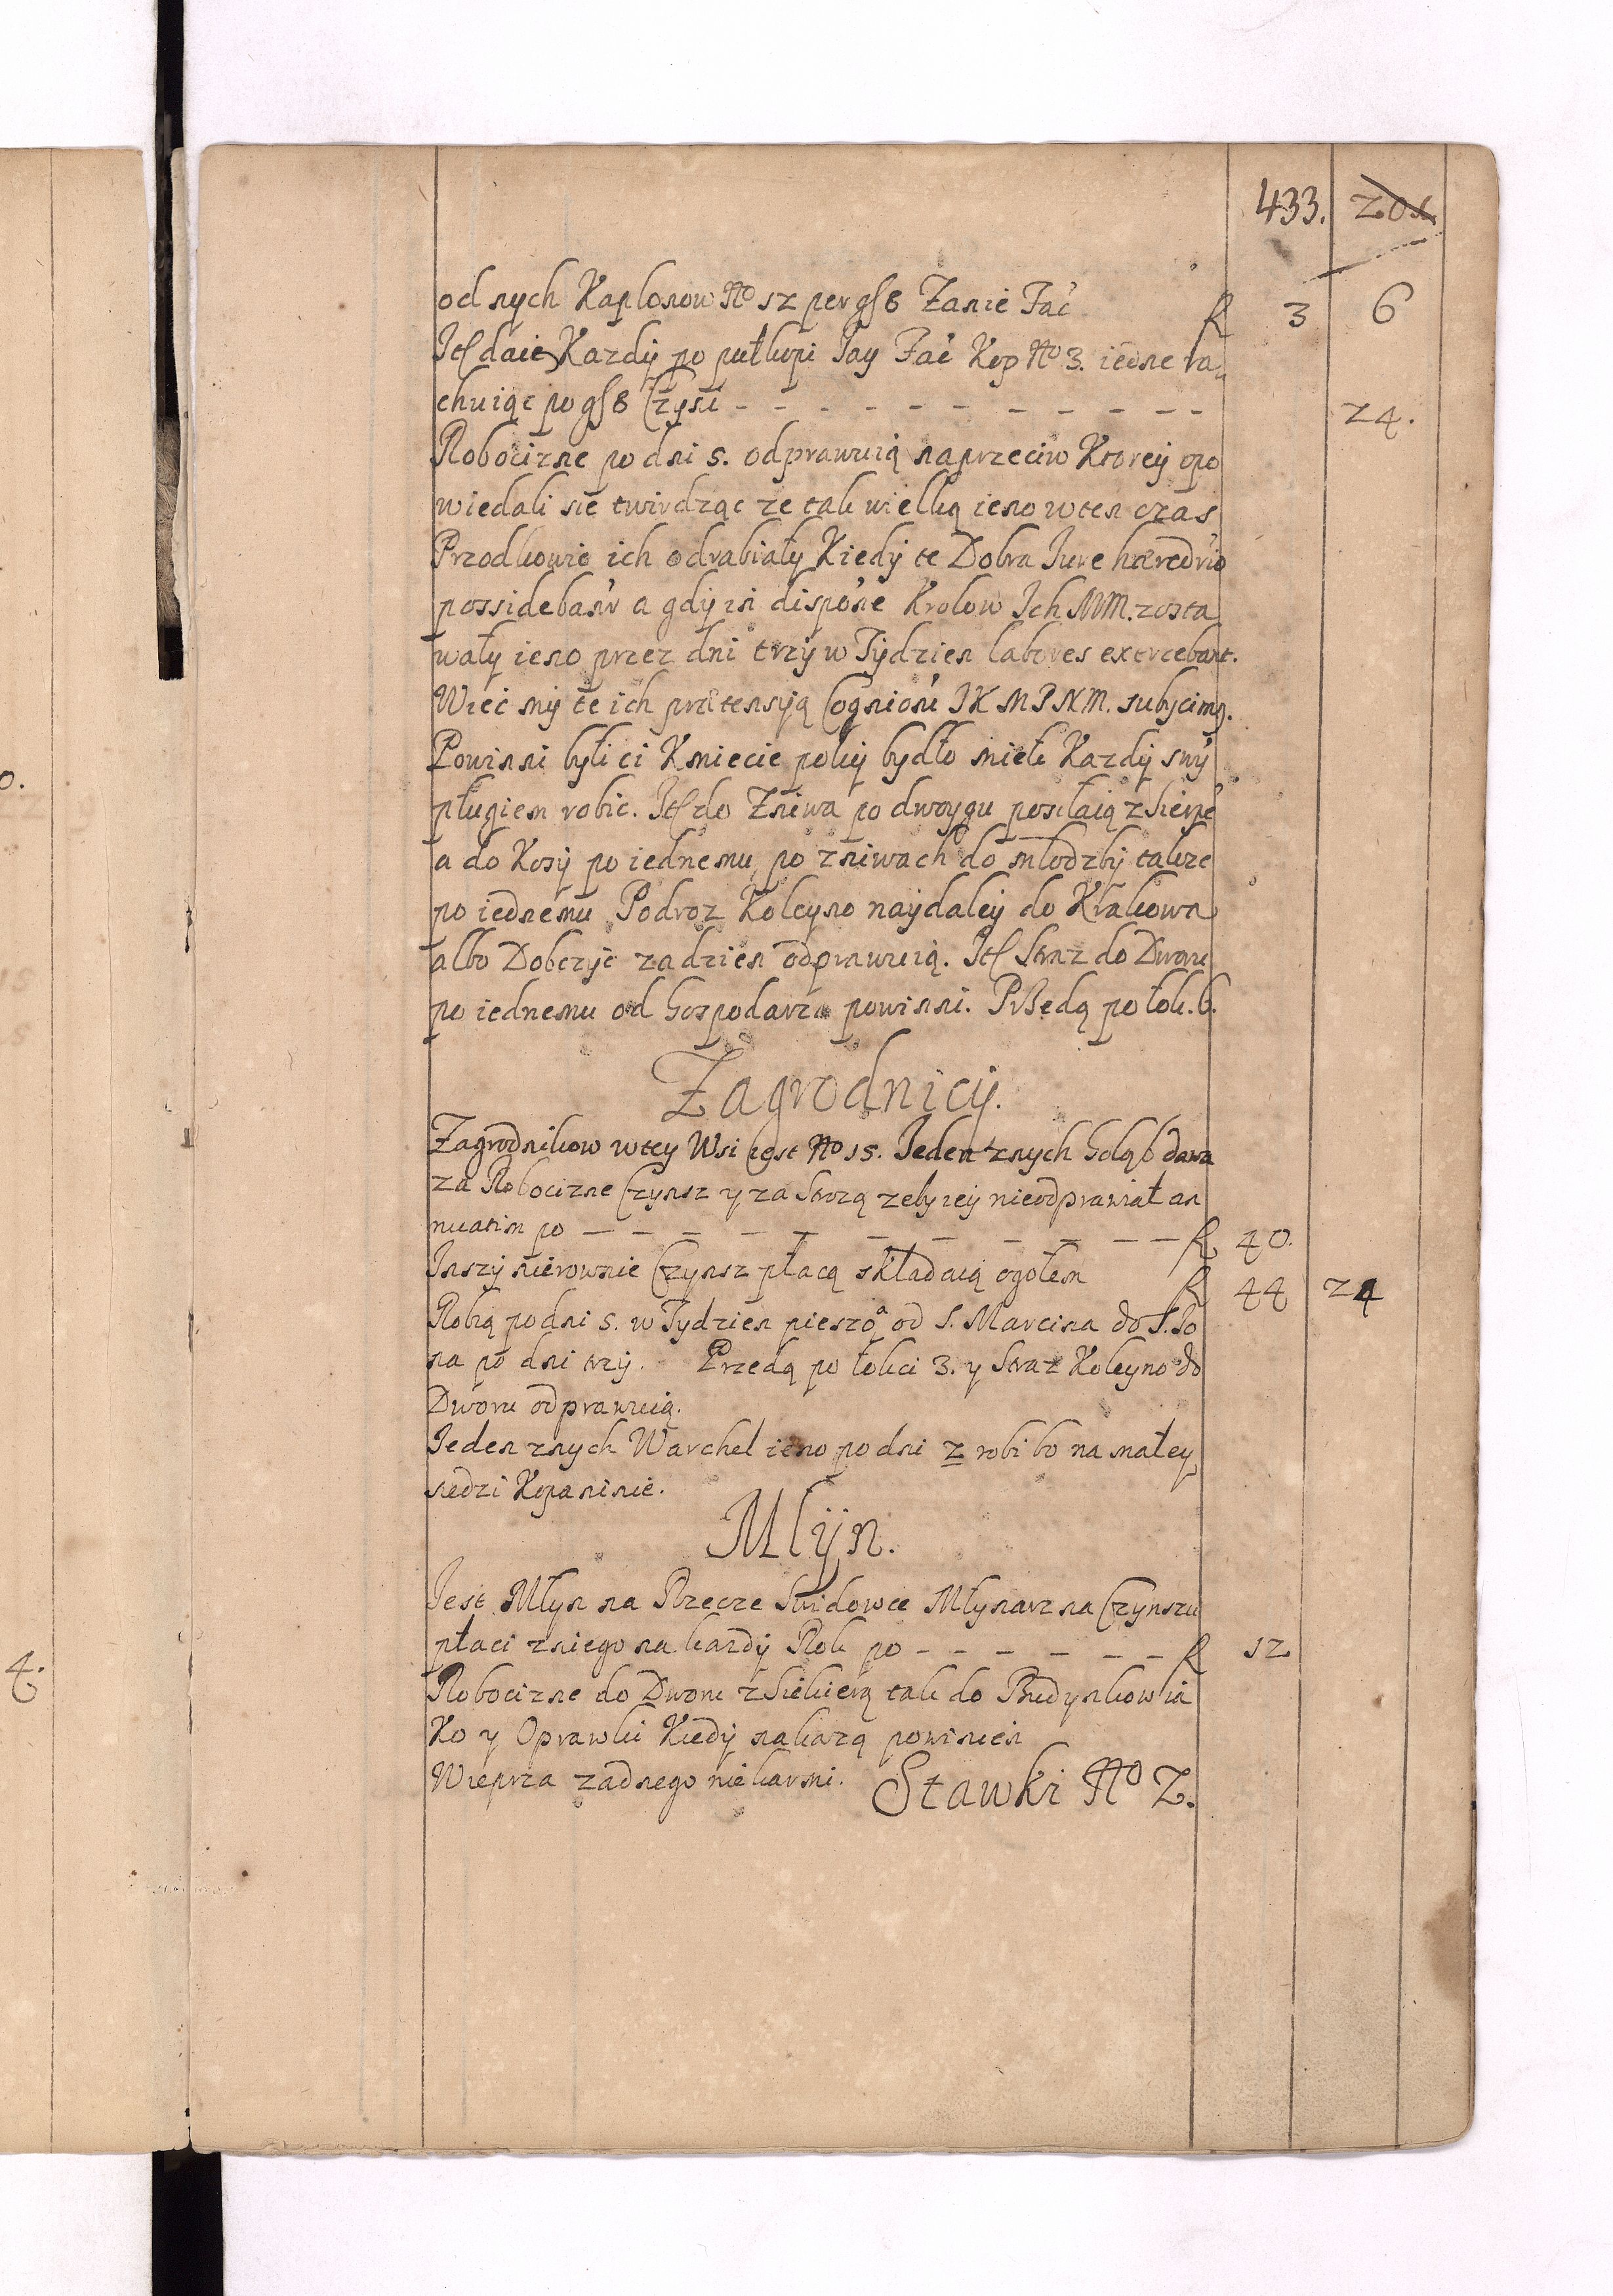 433. 201
od nych Kapłonow No 12 per gſ 8 Zanie Fać f 3 6
Itſ daie Kazdÿ po pułkopi Jay Fać Kop No 3. iedne ra„
chuiąc po gſ 8 Czÿni - - - - - - - - - - - 24.
Robocizne po dni 5. odprawuią naprzeciw Ktorey opo
wiedali sie twirdząc ze tak wielką ieno wten czas
Przodkowie ich odrabiały Kiedÿ te Dobra Jure hæredrio
possidebant a gdÿ in dispone Krolow Ich MM. zosta
wały ieno przez dni trzÿ w Tÿdzien labores exercebant.
Wiec mÿ te ich prætensyą Cognioni JKMPNM. subÿcimȝ.
Powinni byli ci Kmiecie pokÿ bydło mieli Kazdÿ swÿ
pługiem robic. Itſ do Zniwa po dwoygu posłaią z Sierpē
a do Kosÿ po iednemu, po zniwach do młodzbÿ takze
po iednemu Podroz Koleyno naÿdaleÿ do Krakowa
albo Dobczÿc za dzien odprawuią. Itſ Straz do Dworu
po iednemu od Gospodarza powinni. Przedą po łok. 6.
Zagrodnicÿ.
Zagrodnikow wtey Wsi iest No 15. Jeden znych Gołąb dawa
za Robocizne Czynsz y za Strozą zeby ieÿ nieodprawiał an
nuatim po - - - - - - - - - - f 40.
Inszÿ nierownie Czynsz płacą składaią ogołem f 44 24
Robią po dni 5. w Tydzien pieszo od S. Marcina do S. Jo
na po dni trzÿ. Przedą po łokci 3. y Straz Koleyno do
Dworu odprawuią.
Jeden znych Warchel ieno po dni 2 robi bo na małey
siedzi Kopaninie.
Mlÿn.
Jest Młyn na Rzecze Stridowce Młynarz na Czynszu
płaci zniego na kazdÿ Rok po - - - - - - f 12
Robocizne do Dworu z Siekierą tak do Budynkow ia
Ko y Oprawki Kiedÿ nakazą powinien
Wieprza zadnego niekarmi. Stawki No 2.
0.
4.